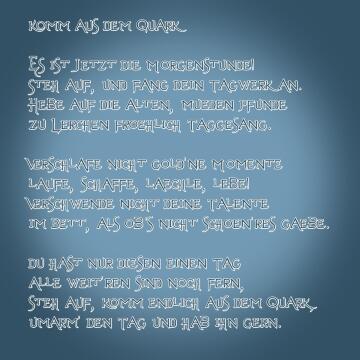 Komm aus dem Quark

Es ist jetzt die Morgenstunde!
Steh auf, und fang dein Tagwerk an.
Hebe auf die alten, mueden Pfunde
zu Lerchen froehlich Taggesang.

Verschlafe nicht gold'ne Momente
laufe, schaffe, laechle, lebe!
Verschwende nicht deine Talente
im Bett, als ob's nicht schoen'res gaebe.

Du hast nur diesen einen Tag
alle weit'ren sind noch fern,
Steh auf, komm endlich aus dem Quark
umarm' den Tag und hab ihn gern.